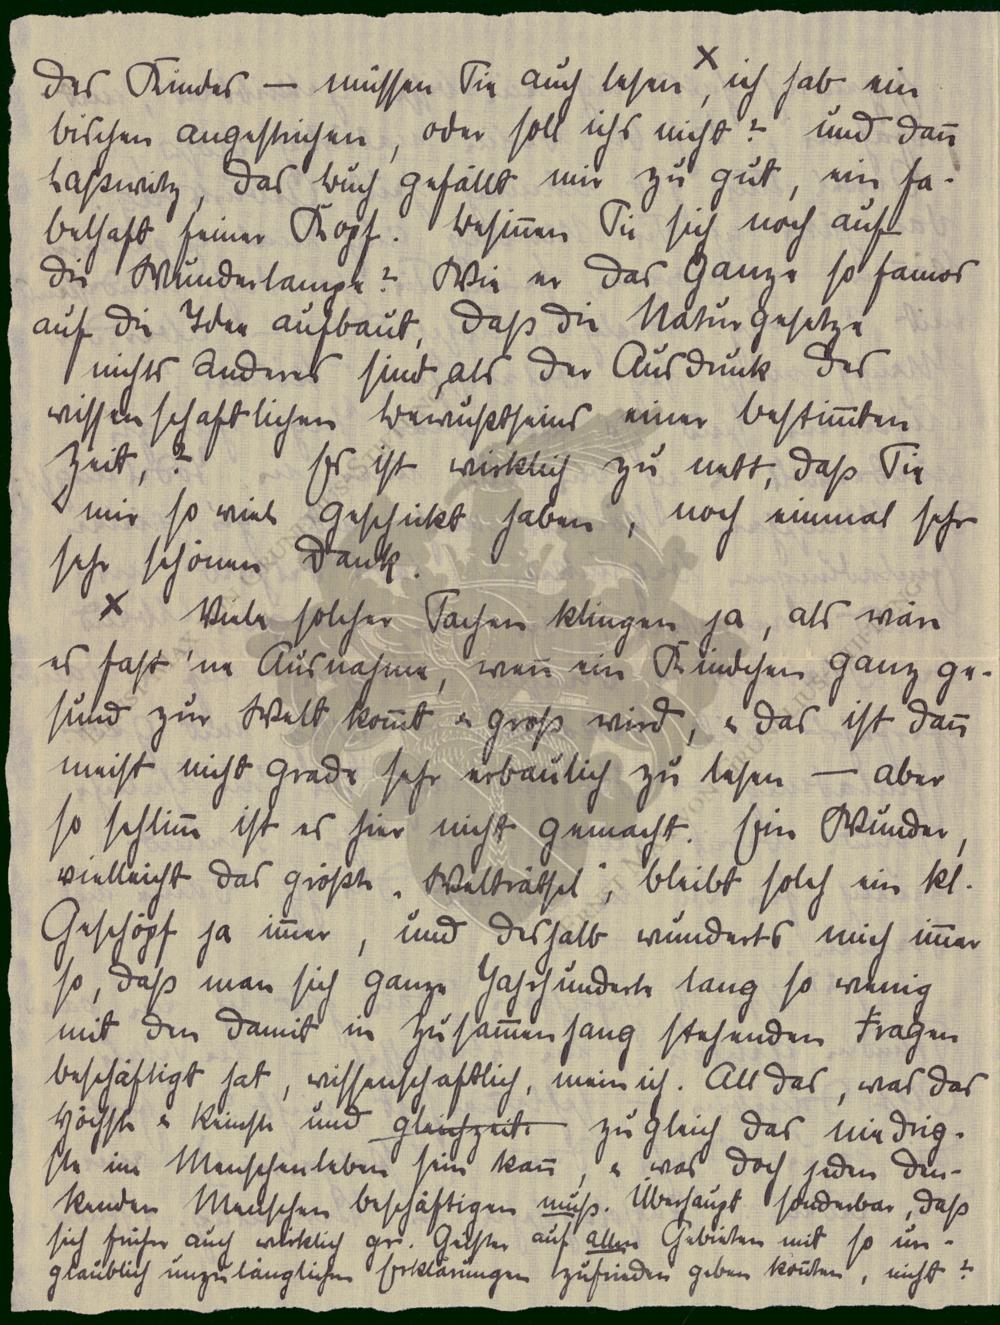 des Kindes — müssen Sie auch lesen, × ich hab ein
bischen angestrichen, oder soll ichs nicht? und dan̄
Laßwitz, das Buch gefällt mir zu gut, ein fa-
belhaft feiner Kopf. Besin̄en Sie sich noch auf
die Wunderlampe? Wie er das Ganze so famos
auf die Idee aufbaut, daß die Naturgesetze
nichts anderes sind, als der Ausdruck des
wissenschaftlichen Bewußtseins einer bestim̄ten
Zeit,? Es ist wirklich zu nett, daß Sie
mir so viel geschickt haben, noch einmal sehr
sehr schönen Dank.
× Viele solcher Sachen klingen ja, als wäre
es fast 'ne Ausnahme, wen̄ ein Kindchen ganz ge-
sund zur Welt kom̄t & groß wird, & das ist dan̄
meist nicht grade sehr erbaulich zu lesen — aber
so schlim̄ ist es hier nicht gemacht. Ein Wunder,
vielleicht das größte „Welträtsel", bleibt solch ein kl.
Geschöpf ja im̄er, und deshalb wunderts mich im̄er
so, daß man sich ganze Jahrhunderte lang so wenig
mit den damit in Zusam̄enhang stehenden Fragen
beschäftigt hat, wissenschaftlich, mein ich. All das, was das
Höchste & Reinste und gleichzeit. zugleich das niedrig-
ste im Menschenleben sein kan̄, & was doch jeden den-
kenden Menschen beschäftigen muß. Überhaupt sonderbar, daß
sich früher auch wirklich gr. Geister auf allen Gebieten mit so un-
glaublich unzulänglichen Erklärungen zufrieden geben kon̄ten, nicht?